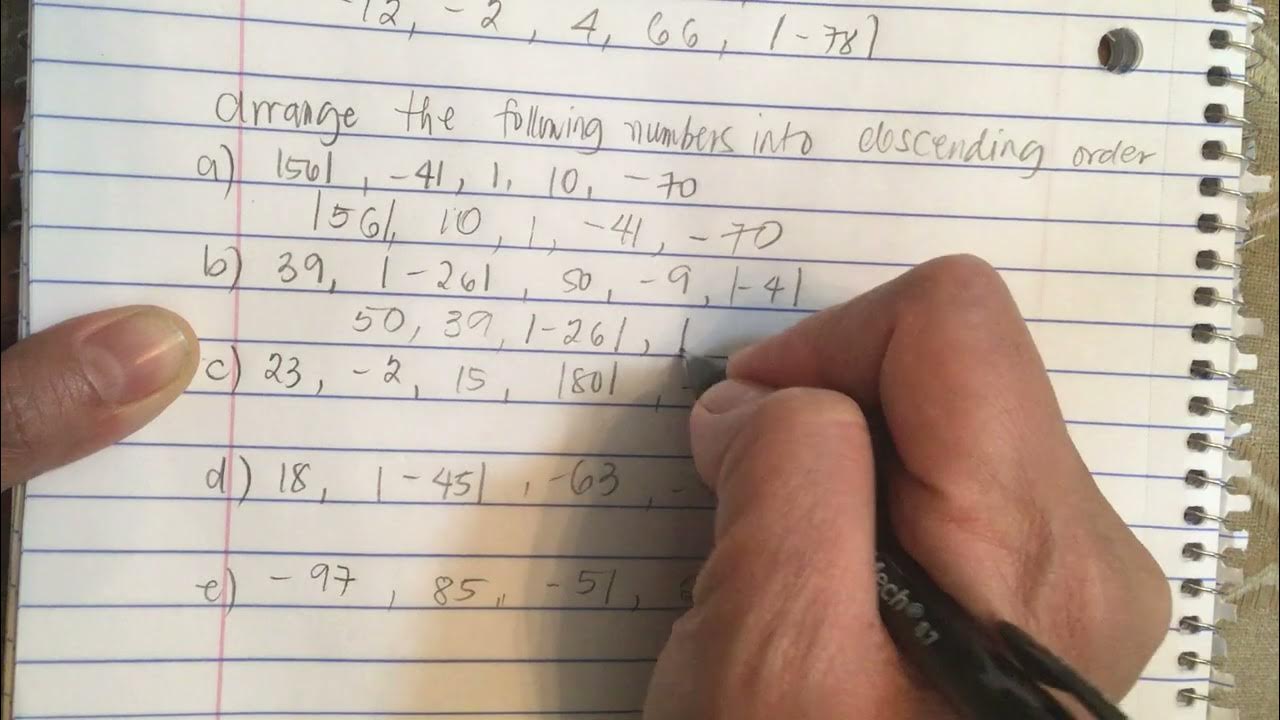 -12, -2, 4, 66, |-78|
arrange the following numbers into descending order
a) |56|, -41, 1, 10, -70
|56|, 10, 1, -41, -70
b) 39, |-26|, 50, -9, |-4|
50, 39, |-26|, |
c) 23, -2, 15, |80|, -
d) 18, |-45|, -63, -
e) -97, 85, -51,